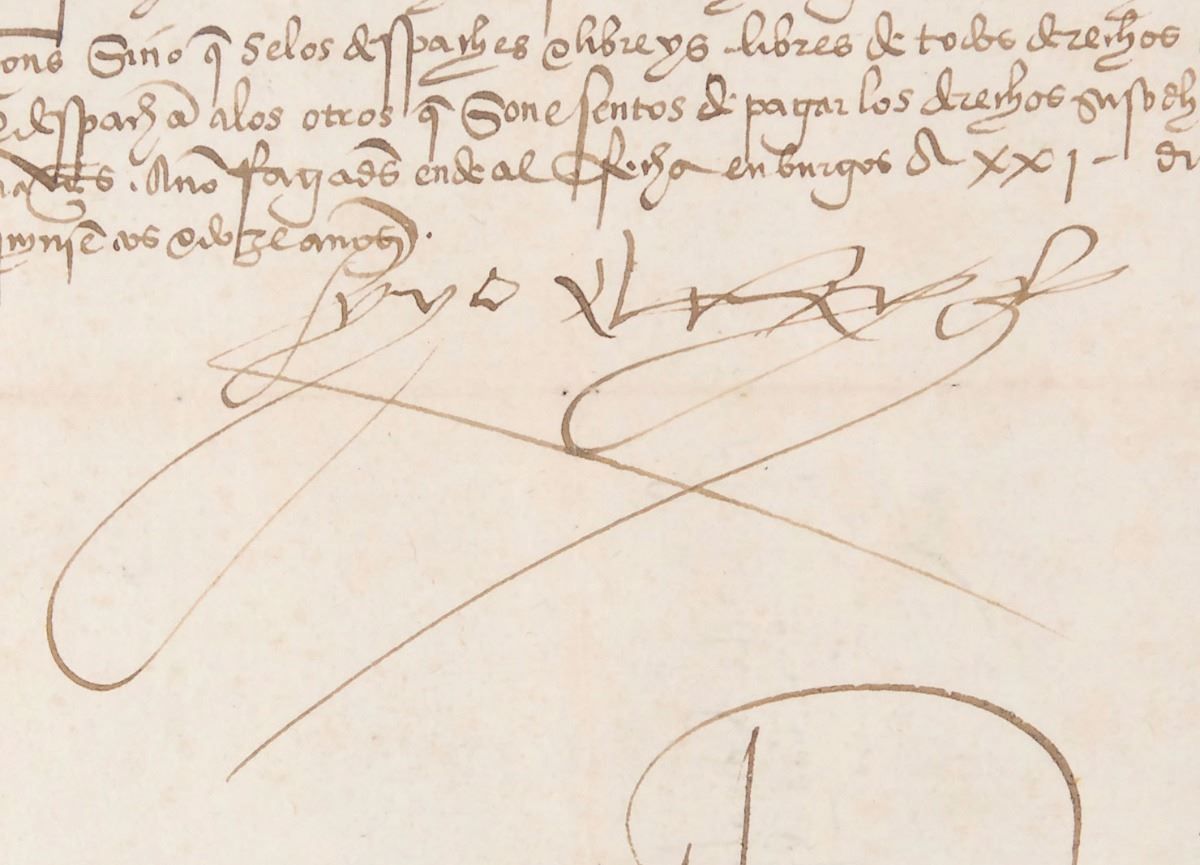 Sino q̃ gelos despacheys e libreys libres de todos derechos
e despachã alos otros q̃ son esentos de pagar los derechos suso dh
no fagades ende al fecha en burgos a xxj di
quinientos e doze años.
yo el Rey